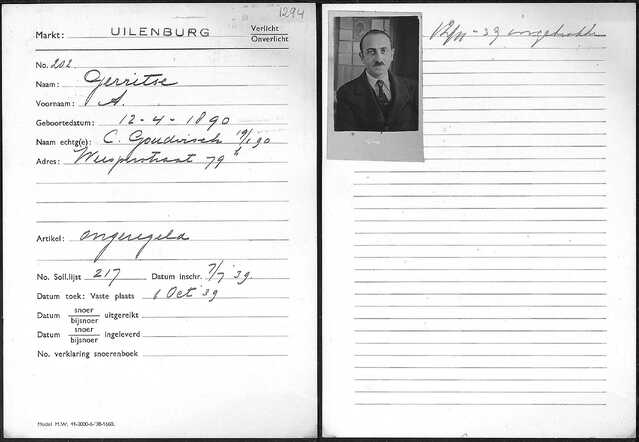 1294
Markt: UILENBURG Verlicht
Onverlicht
No. 202
Naam: Gerritse
Voornaam: A.
Geboortedatum: 12-4-1890
Naam echtg(e): C. Goudvisch 19/1 90
Adres: Weesperstraat 79
Artikel: ongeregeld
No. Soll.lijst 217 Datum inschr. 7/7 '39.
Datum toek: Vaste plaats 1 Oct '39
Datum snoer
bijsnoer uitgereikt
Datum snoer
bijsnoer ingeleverd
No. verklaring snoerenboek
Model M.W. 44-3000-6-'38-1660.
12/11-39